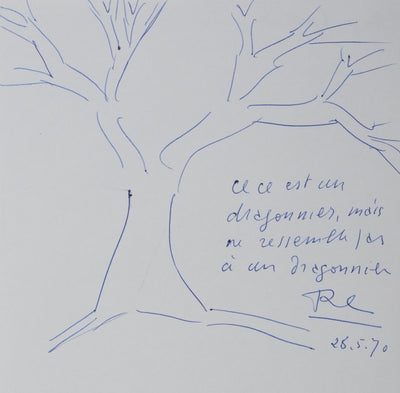 ce ce est un
dragonnier, mais
ne ressemble pas
à un dragonnier
26.5.70